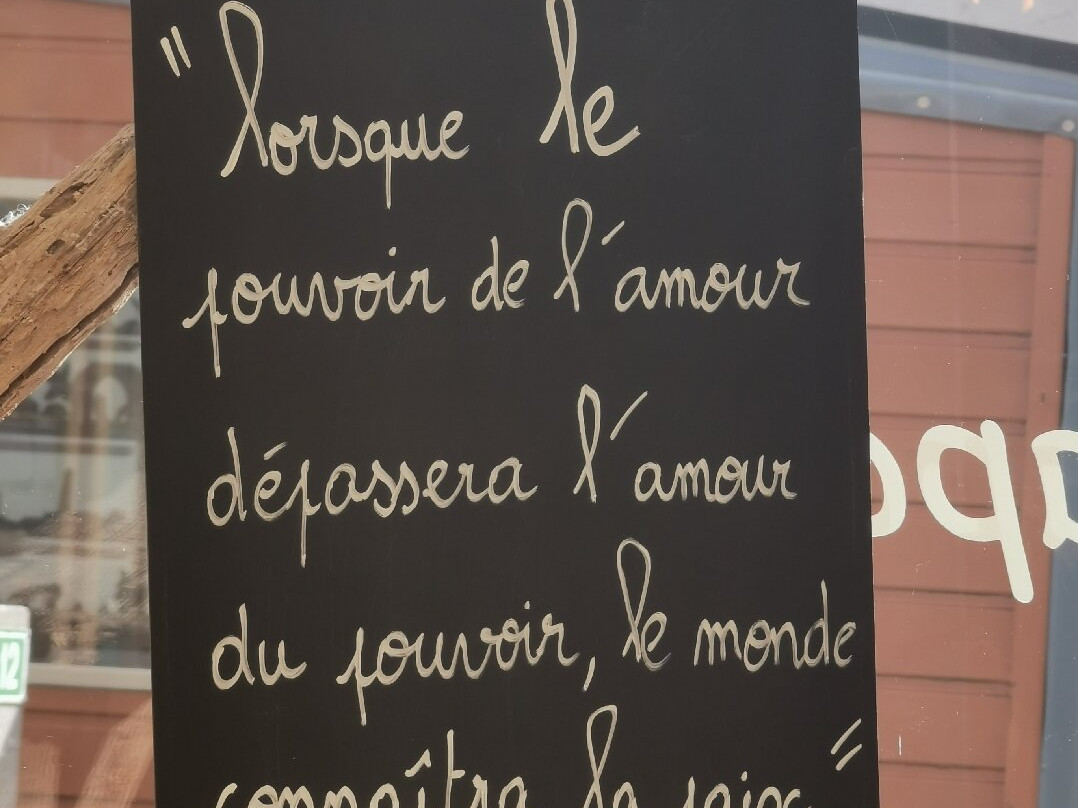 "lorsque le
pouvoir de l'amour
dépassera l'amour
du pouvoir, le monde
connaîtra la paix"
12